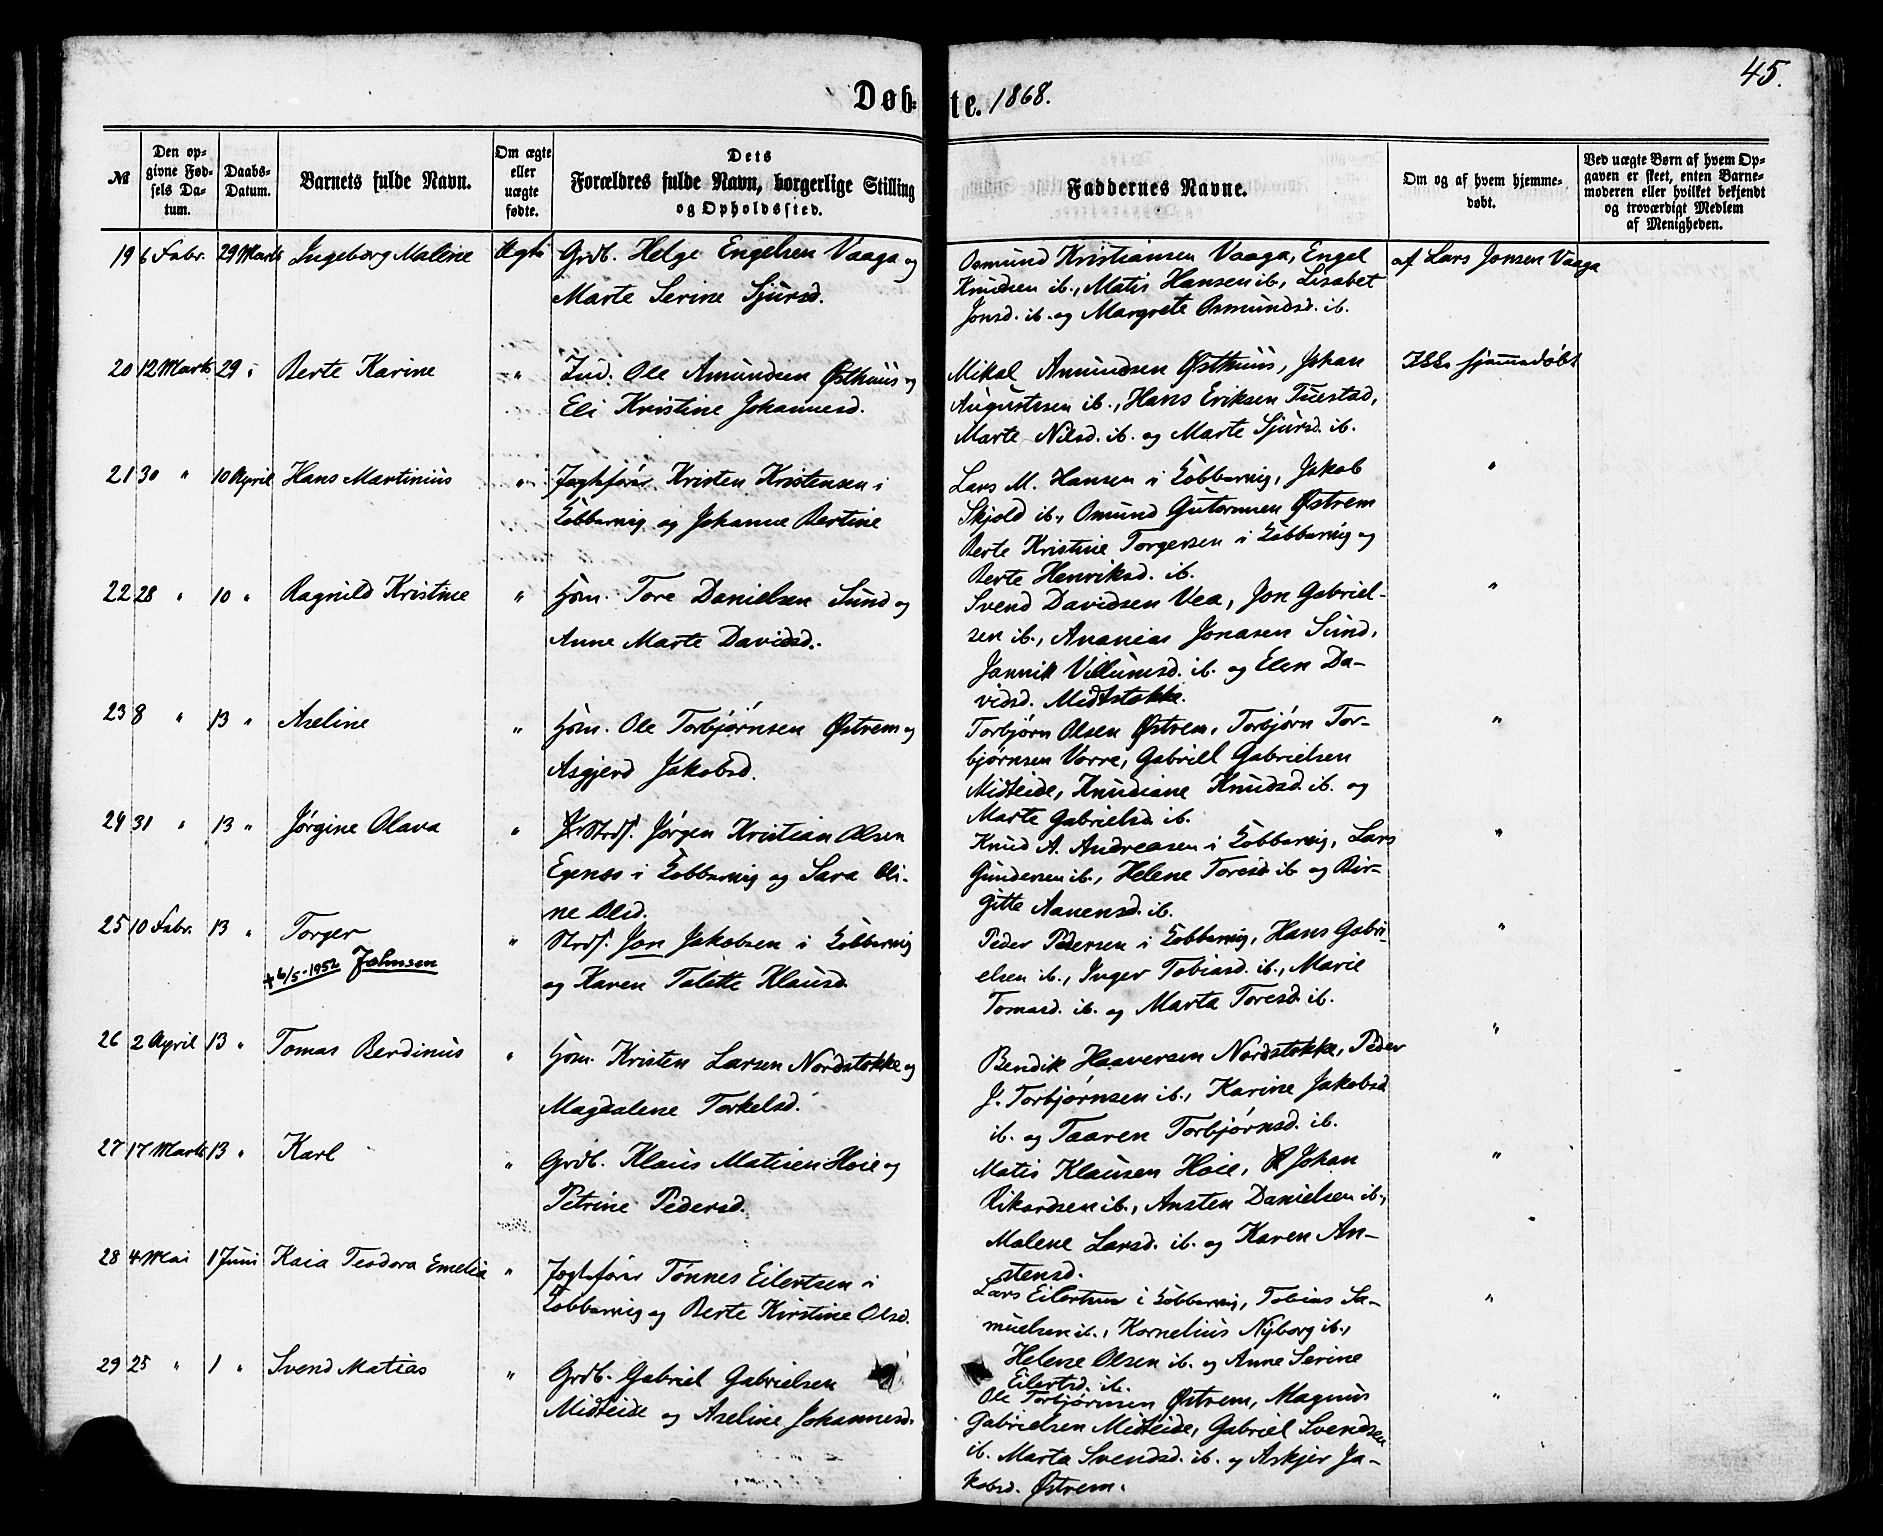 45.
Døb-te. 1868.
№
Den opgivne Fødsels Datum.
Daabs-Datum.
Barnets fulde Navn.
Om ægte eller uægte fødte.
Dets Forældres fulde Navn, borgerlige Stilling og Opholdssted.
Faddernes Navne.
Om og af hvem hjemmedøbt.
Ved uægte Børn af hvem Opgaven er skeet, enten Barnemoderen eller hvilket bekjendt og troværdigt Medlem af Menigheden.
19 6 Febr. 29 Marts Ingeborg Malene Ægte Grdb. Helge Engelsen Vaaga og
Marte Serine Sjursd.
Osmund Kristiansen Vaaga, Engel
Knudsen ib., Matis Hansen ib., Lisabet
Jonsd. ib. og Margrete Osmundsd. ib.
af Lars Jonsen Vaaga
20 12 Marts 29 " Berte Karine " Ind. Ole Amundsen Østhuus og
Eli Kristine Johannesd.
Mikal Amundsen Østhuus, Johan
Augustsen ib., Hans Eriksen Tuestad,
Marte Nilsd. ib. og Marte Sjursd. ib.
Ikke hjemmedøbt
21 30 " 10 April Hans Martinius " Jagtefører Kristen Kristensen i
Kobbervig og Johanne Bertine
Lars M. Hansen i Kobbervig, Jakob
Skjold ib., Omund Gutormsen Østrem
Berte Kristine Torgersen i Kobbervig og
Berte Henriksd. ib.
"
22 28 " 10 " Ragnild Kristine " Hsm. Tore Danielsen Sund og
Anne Marte Davidsd.
Svend Davidsen Vea, Jon Gabriel-
sen ib., Ananias Jonasen Sund,
Jannik Villumsd. ib. og Elen Da-
vidsd. Midtstokke.
"
23 8 " 13 " Aseline " Hsm. Ole Torbjørnsen Østrem og
Asgjerd Jakobsd.
Torbjørn Olsen Østrem, Torbjørn Tor-
bjørnsen Vorre, Gabriel Gabrielsen
Midteide, Knudiane Knudsd. ib. og
Marte Gabrielsd. ib.
"
24 31 " 13 " Jørgine Olava " Strdf. Jørgen Kristian Olsen
Egenes i Kobbervig og Sara Oli-
ne Olsd.
Knud A. Andreasen i Kobbervig, Lars
Gundersen ib., Helene Toresd. ib og Bir-
gitte Aanensd. ib.
"
25 10 Febr. 13 " Torger " Strdf. Jon Jakobsen i Kobbervig
+ 6/5-1952 Johnsen
og Karen Talette Klausd.
Peder Pedersen i Kobbervig, Hans Gabri-
elsen ib., Inger Tobiasd. ib., Marie
Tomasd. ib. og Marta Toresd. ib.
"
26 2 April 13 " Tomas Berdinus " Hsm. Kristen Larsen Nordstokke og
Magdalene Torkelsd.
Bendik Haaversen Nordstokke, Peder
J. Torbjørnsen ib., Karine Jakobsd
ib. og Taaren Torbjørnsd. ib.
"
27 17 Marts 13 " Karl " Grdb. Klaus Matisen Hoie og
Petrine Pedersd.
Matis Klausen Hoie, Johan
Rikardsen ib., Ansten Danielsen ib.,
Malene Larsd. ib. og Karen An-
stensd.
"
28 4 Mai 1 Juni Kaia Teodora Emelia " Jagtefører Tønnes Eilertsen i
Kobbervig og Berte Kirstine Olsd.
Lars Eilertsen i Kobbervig, Tobias Sa-
muelsen ib., Kornelius Nyborg ib.,
Helene Olsen ib. og Anne Serine
Eilertsd. ib.
"
29 25 " 1 " Svend Matias " Grdb. Gabriel Gabrielsen
Midteide og Aseline Johannesd.
Ole Torbjørnsen Østrem, Magnus
Gabrielsen Midteide, Gabriel Svendsen
ib. Marta Svendsd. ib. og Askjer Ja-
kobsd. Østrem.
"